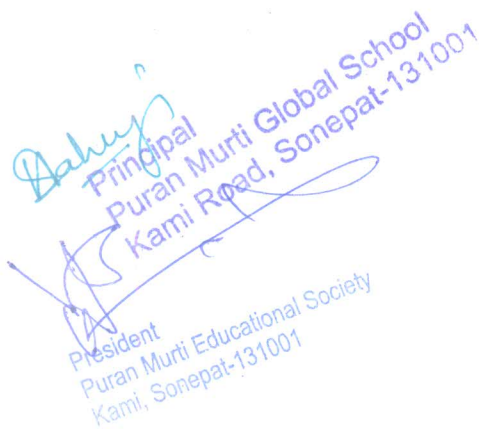 Principal
Puran Murti Global School
Kami Road, Sonepat-131001
President
Puran Murti Educational Society
Kami, Sonepat-131001